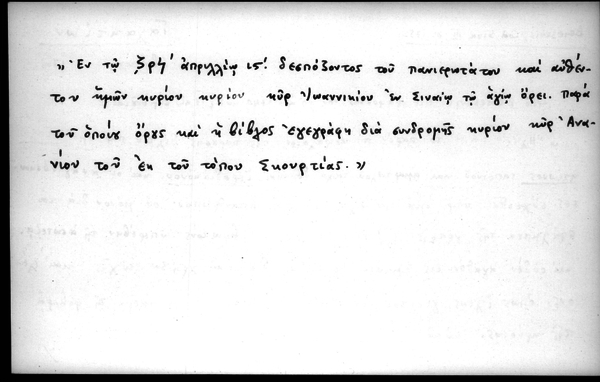 » Ἐν τῷ ξρϟ′ ἀπριλλίῳ ις′. δεσπόζοντος τοῦ πανιερωτάτου καί αὐθέν-
του ἡμῶν κυρίου κυρίου κῦρ Ἰωαννικίου ἐν Σιναίῳ τῷ ἁγίῳ ὄρει. παρά
τοῦ ὁποίου ὄρους καί ἡ βίβλος ἐγεγράφη διά συνδρομῆς κυρίου κῦρ Ἀνα-
νίου τοῦ ἐκ τοῦ τόπου Σκουρτίας. »